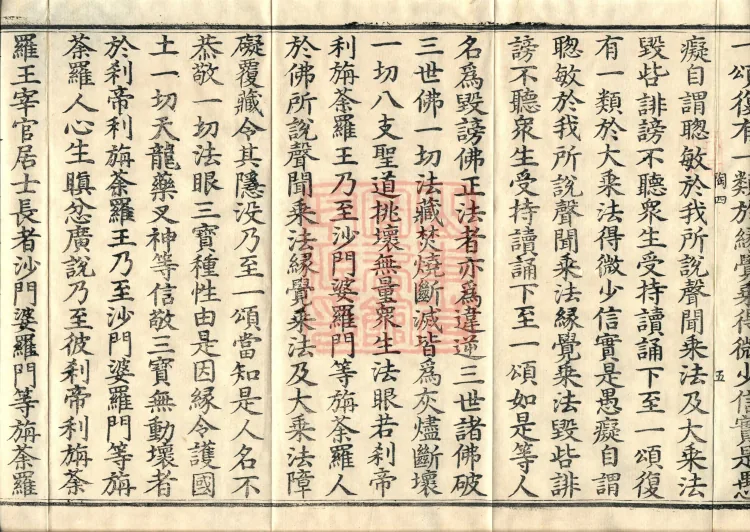 一頌復有一類於緣覺乘得微少信實是愚
陶四 五
癡自謂聰敏於我所說聲聞乘法及大乘法
毀呰誹謗不聽衆生受持讀誦下至一頌復
有一類於大乘法得微少信實是愚癡自謂
聰敏於我所說聲聞乘法緣覺乘法毀呰誹
謗不聽衆生受持讀誦下至一頌如是等人
名爲毀謗佛正法者亦爲違逆三世諸佛破
三世佛一切法藏焚燒斷滅皆爲灰燼斷壞
一切八支聖道挑壞無量衆生法眼若剎帝
利旃荼羅王乃至沙門婆羅門等旃荼羅人
於佛所說聲聞乘法緣覺乘法及大乘法障
礙覆藏令其隱沒乃至一頌當知是人名不
恭敬一切法眼三寶種性由是因緣令護國
土一切天龍藥叉神等信敬三寶無動壞者
於剎帝利旃荼羅王乃至沙門婆羅門等旃
荼羅人心生瞋忿廣說乃至彼剎帝利旃荼
羅王宰官居士長者沙門婆羅門等旃荼羅